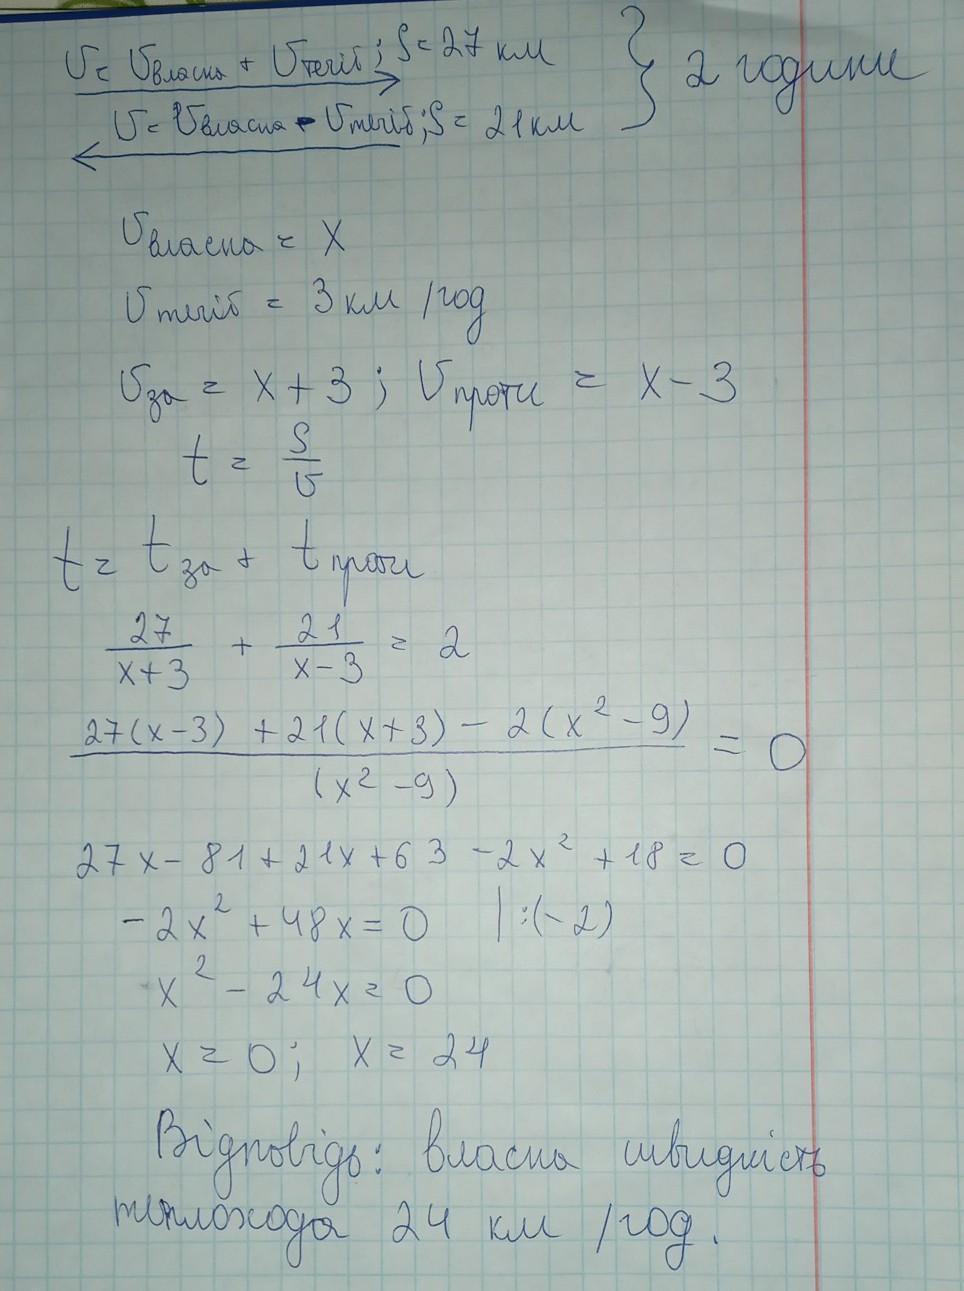 V = Vвласна + Vтечії; S = 27 км
V = Vвласна - Vтечії; S = 21 км
} 2 години
Vвласна = x
Vтечії = 3 км /год
Vза = x + 3 ; Vпроти = x - 3
t = S/V
t = tза + tпроти
27/(x+3) + 21/(x-3) = 2
(27(x-3) + 21(x+3) - 2(x² - 9))/(x² - 9) = 0
27x - 81 + 21x + 63 - 2x² + 18 = 0
-2x² + 48x = 0 | :(-2)
x² - 24x = 0
x = 0; x = 24
Відповідь: власна швидкість
теплохода 24 км /год.